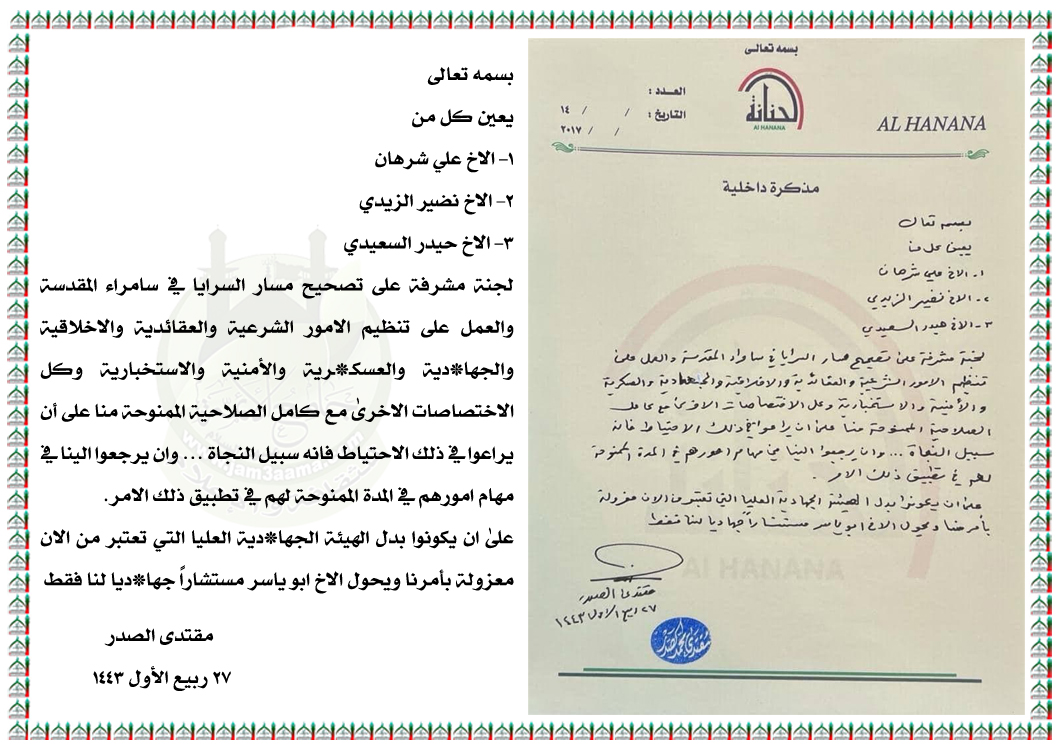 بسمه تعالى
يعين كل من
١- الاخ علي شرهان
٢- الاخ نضير الزيدي
٣- الاخ حيدر السعيدي
لجنة مشرفة على تصحيح مسار السرايا في سامراء المقدسة
والعمل على تنظيم الامور الشرعية والعقائدية والاخلاقية
والجها*دية والعسك*رية والأمنية والاستخبارية وكل
الاختصاصات الاخرىٰ مع كامل الصلاحية الممنوحة منا على أن
يراعوا في ذلك الاحتياط فانه سبيل النجاة ... وان يرجعوا الينا في
مهام امورهم في المدة الممنوحة لهم في تطبيق ذلك الامر.
علىٰ ان يكونوا بدل الهيئة الجها*دية العليا التي تعتبر من الان
معزولة بأمرنا ويحول الاخ ابو ياسر مستشاراً جها*ديا لنا فقط
مقتدى الصدر
٢٧ ربيع الأول ١٤٤٣
بسمه تعالى
العدد :
التاريخ : / / ١٤
/ / ٢٠١٧
الحنانة
AL HANANA
AL HANANA
مذكرة داخلية
بسمه تعالى
يعين كل من
١- الاخ علي شرهان
٢- الاخ نضير الزيدي
٣- الاخ حيدر السعيدي
لجنة مشرفة على تصحيح مسار السرايا في سامراء المقدسة والعمل على
تنظيم الامور الشرعية والعقائدية والاخلاقية والجهادية والعسكرية
والأمنية والاستخبارية وكل الاختصاصات الاخرى مع كامل
الصلاحية الممنوحة منا على ان يراعوا في ذلك الاحتياط فانه
سبيل النجاة ... وان يرجعوا الينا في مهام امورهم في المدة الممنوحة
لهم في تطبيق ذلك الامر .
على ان يكونوا بدل الهيئة الجهادية العليا التي تعتبر من الان معزولة
بأمرنا ويحول الاخ ابو ياسر مستشاراً جهاديا لنا فقط
مقتدى الصدر
٢٧ ربيع الاول ١٤٤٣